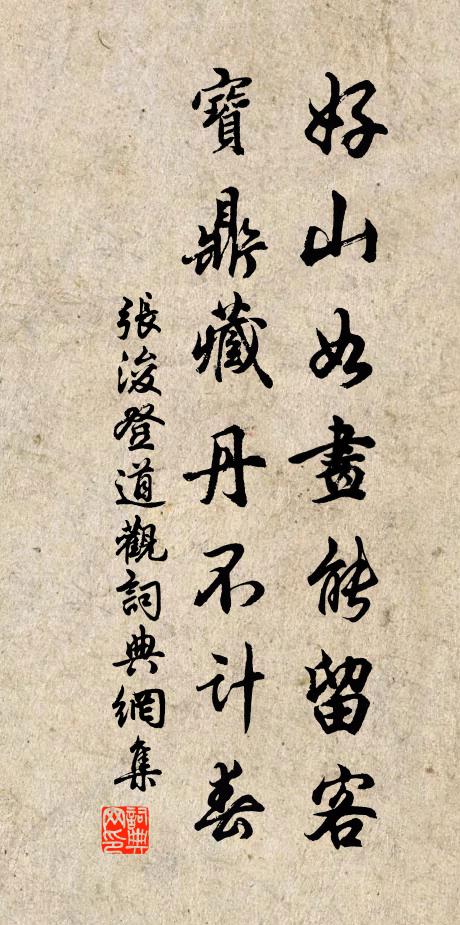 好山如畫能留客
寶鼎藏丹不計春
張浚登道觀詞典網集
詞典网印